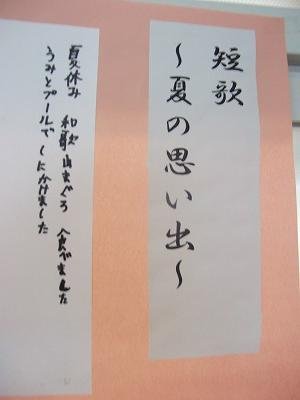 短歌
〜夏の思い出〜
夏休み 和歌山まぐろ 食べました
うみとプールで しにかけました